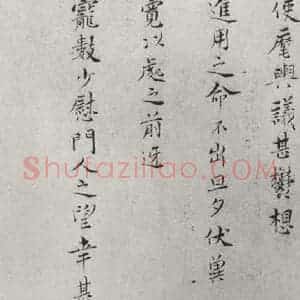 使麾輿議甚鬱想
進用之命不出旦夕伏冀
寛以處之前迓
寵數少慰門人之望幸甚
Shufaziliao.COM